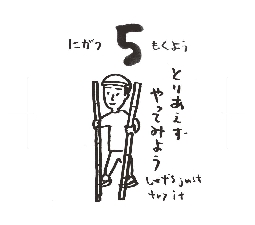 にがつ 5 もくよう
とりあえず
やってみよう
Let's just
try it